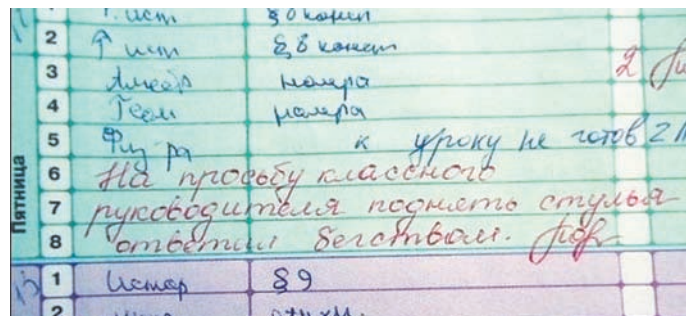 ист § 8 конст
2 ист § 8 конст
3 Алгебр номера 2
4 Геом номера
5 Физ ра к уроку не готов 2
6 На просьбу классного
7 руководителя поднять стулья
8 ответил бегством.
Пятница
1 Истор § 9
2